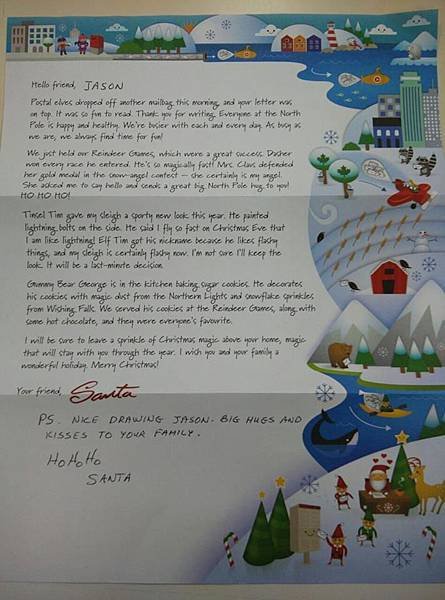 Hello friend, JASON
Postal elves dropped off another mailbag this morning, and your letter was
on top. It was so fun to read. Thank you for writing. Everyone at the North
Pole is happy and healthy. We're busier with each and every day. As busy as
we are, we always find time for fun!
We just held our Reindeer Games, which were a great success. Dasher
won every race he entered. He's so magically fast! Mrs. Claus defended
her gold medal in the snow-angel contest – she certainly is my angel.
She asked me to say hello and sends a great big North Pole hug to you!
HO HO HO!
Tinsel Tim gave my sleigh a sporty new look this year. He painted
lightning bolts on the side. He said I fly so fast on Christmas Eve that
I am like lightning! Elf Tim got his nickname because he likes flashy
things, and my sleigh is certainly flashy now. I'm not sure I'll keep the
look. It will be a last-minute decision.
Gummy Bear George is in the kitchen baking sugar cookies. He decorates
his cookies with magic dust from the Northern Lights and snowflake sprinkles
from Wishing Falls. We served his cookies at the Reindeer Games, along with
some hot chocolate, and they were everyone's favourite.
I will be sure to leave a sprinkle of Christmas magic above your home, magic
that will stay with you through the year. I wish you and your family a
wonderful holiday. Merry Christmas!
Your friend, Santa
PS. NICE DRAWING JASON. BIG HUGS AND
KISSES TO YOUR FAMILY.
HO HO HO
SANTA